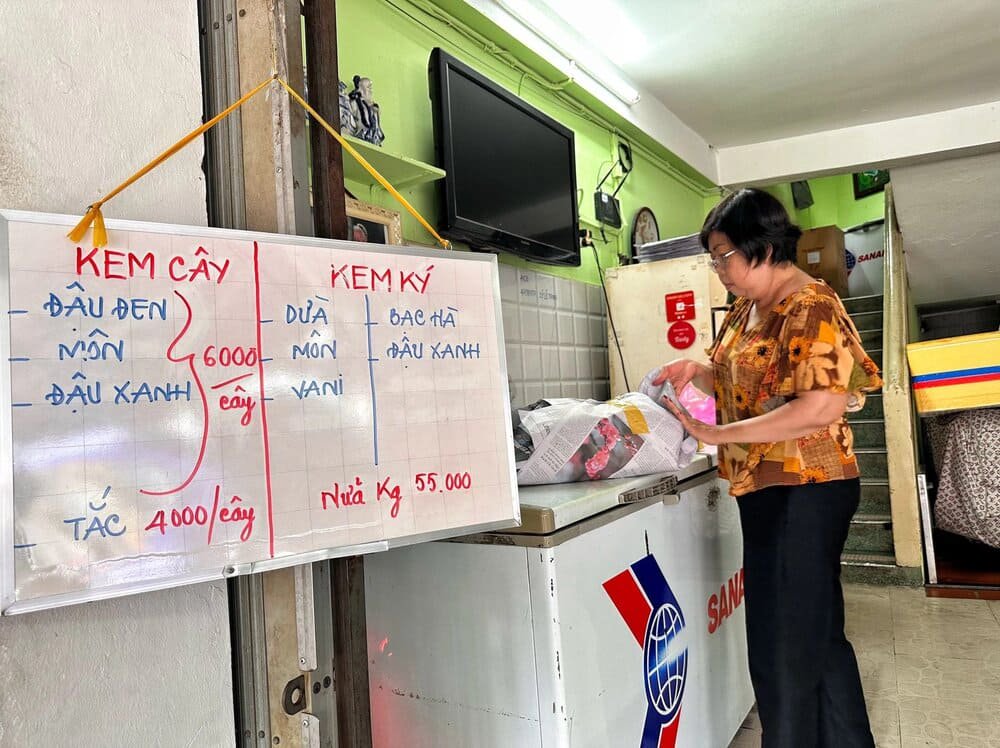 KEM CÂY
- ĐẬU ĐEN
- MÔN
- ĐẬU XANH
6000/cây
- TẮC 4000/cây
KEM KÝ
- DỪA
- MÔN
- VANI
- BẠC HÀ
- ĐẬU XANH
Nửa Kg 55.000
SANA
SANA